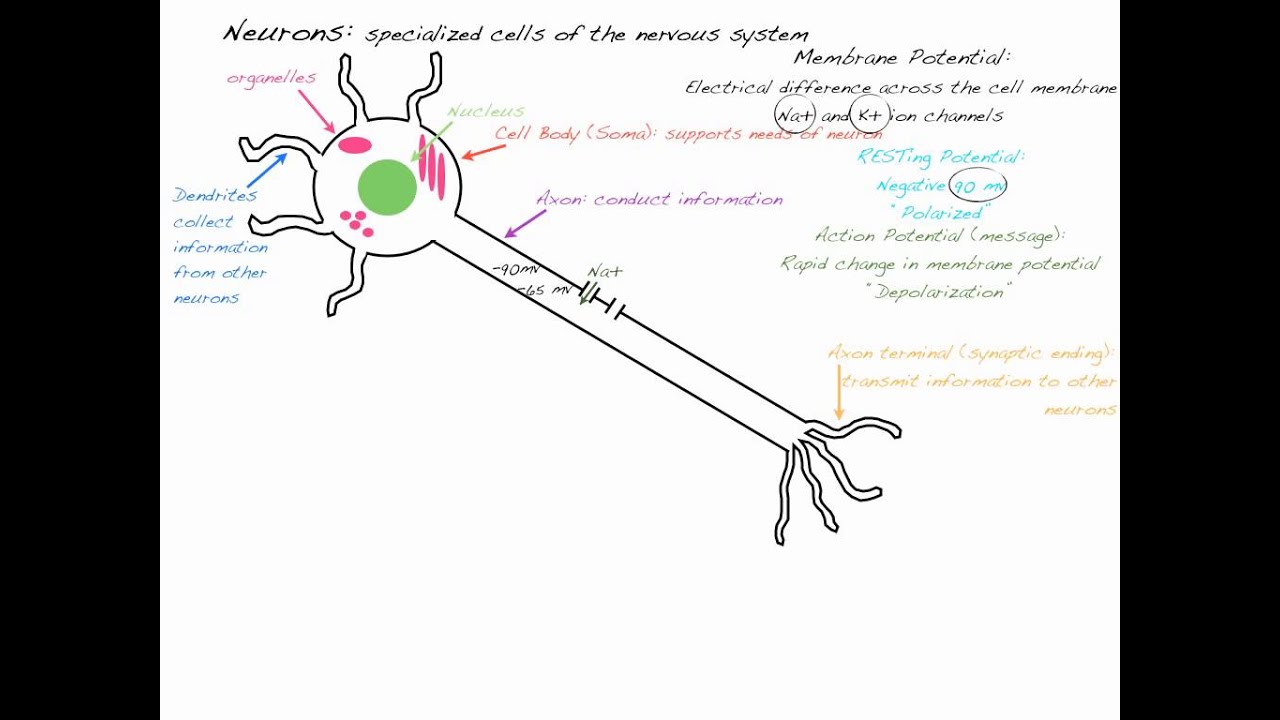 Neurons: specialized cells of the nervous system
Membrane Potential:
Electrical difference across the cell membrane
Na+ and K+ ion channels
organelles
Nucleus
Cell Body (Soma): supports needs of neuron
RESTing Potential:
Negative 90 mv
"Polarized"
Dendrites
collect
information
from other
neurons
Axon: conduct information
Action Potential (message):
Rapid change in membrane potential
"Depolarization"
-90mv
Na+
-65 mv
Axon terminal (synaptic ending):
transmit information to other
neurons